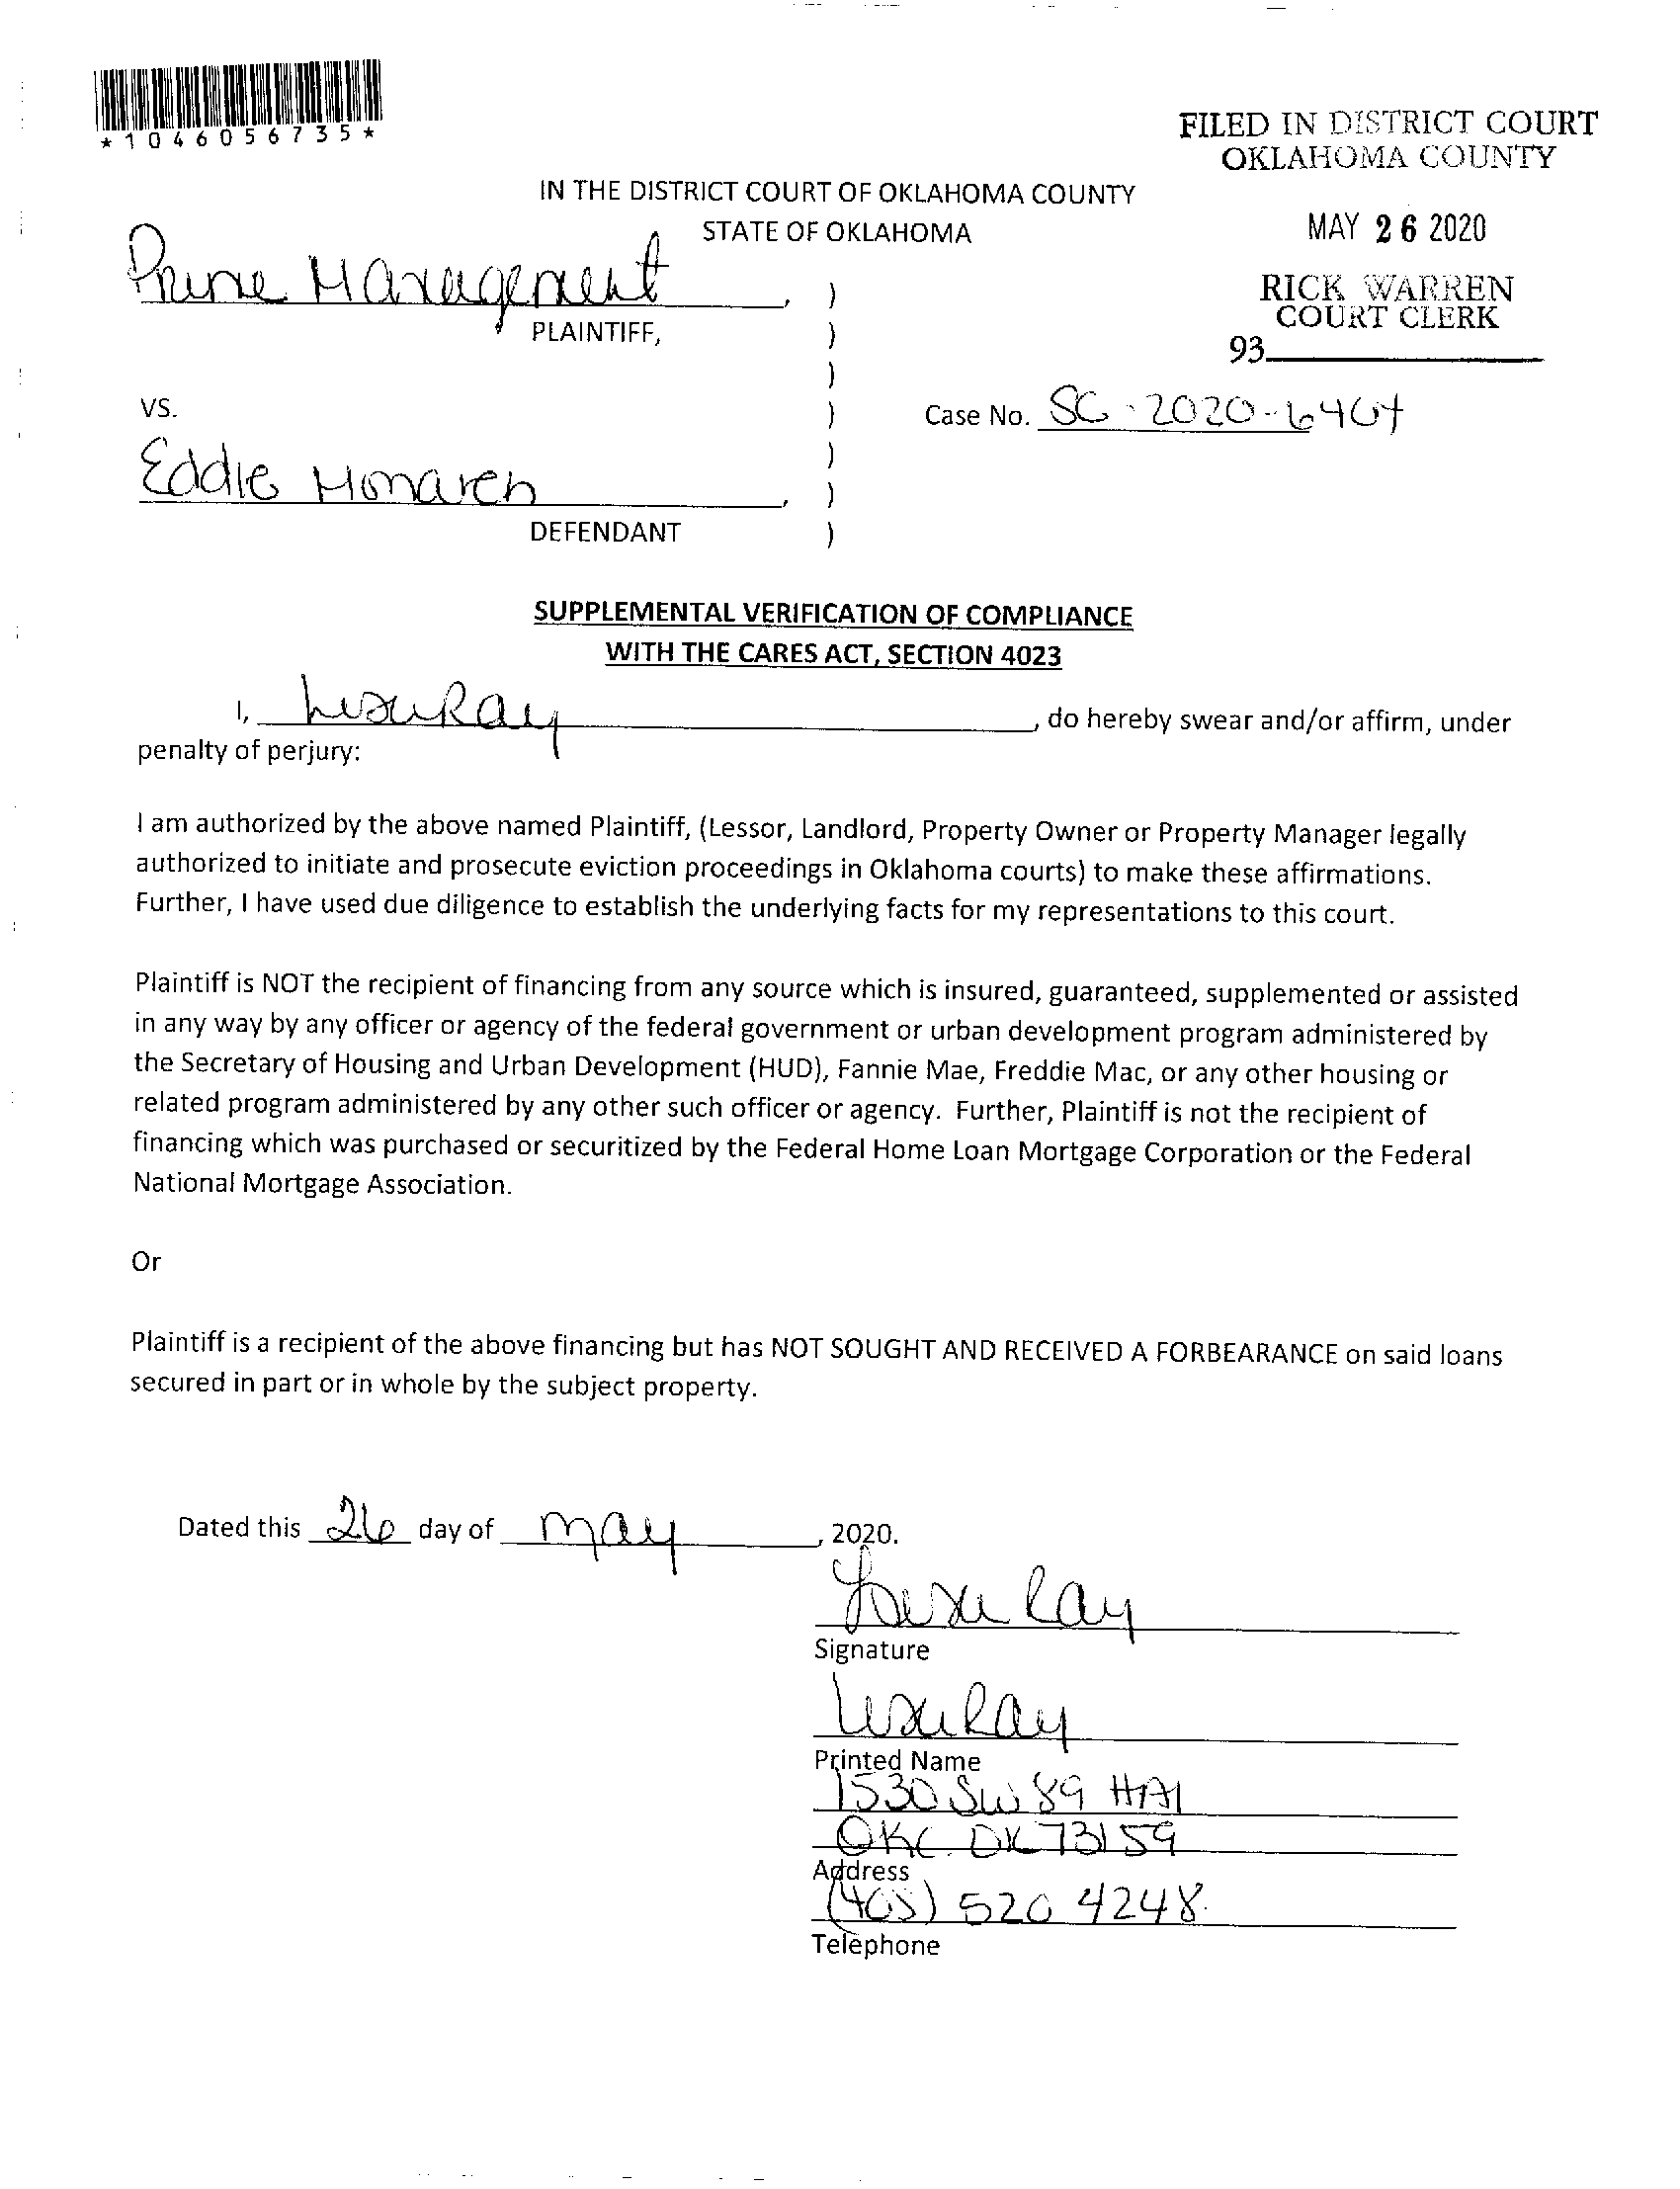 *1046056735*
FILED IN DISTRICT COURT
OKLAHOMA COUNTY
MAY 26 2020
RICK WARREN
COURT CLERK
93
IN THE DISTRICT COURT OF OKLAHOMA COUNTY
STATE OF OKLAHOMA
Prime Management, )
PLAINTIFF, )
)
VS. ) Case No. SC-2020-6464
)
Eddie Monarch, )
DEFENDANT )
SUPPLEMENTAL VERIFICATION OF COMPLIANCE
WITH THE CARES ACT, SECTION 4023
I, Lisa Ray, do hereby swear and/or affirm, under
penalty of perjury:
I am authorized by the above named Plaintiff, (Lessor, Landlord, Property Owner or Property Manager legally
authorized to initiate and prosecute eviction proceedings in Oklahoma courts) to make these affirmations.
Further, I have used due diligence to establish the underlying facts for my representations to this court.
Plaintiff is NOT the recipient of financing from any source which is insured, guaranteed, supplemented or assisted
in any way by any officer or agency of the federal government or urban development program administered by
the Secretary of Housing and Urban Development (HUD), Fannie Mae, Freddie Mac, or any other housing or
related program administered by any other such officer or agency. Further, Plaintiff is not the recipient of
financing which was purchased or securitized by the Federal Home Loan Mortgage Corporation or the Federal
National Mortgage Association.
Or
Plaintiff is a recipient of the above financing but has NOT SOUGHT AND RECEIVED A FORBEARANCE on said loans
secured in part or in whole by the subject property.
Dated this 26 day of May, 2020.
Lisa Ray
Signature
Lisa Ray
Printed Name
1530 SW 89 #A1
OKC OK 73159
Address
(405) 520 4248
Telephone